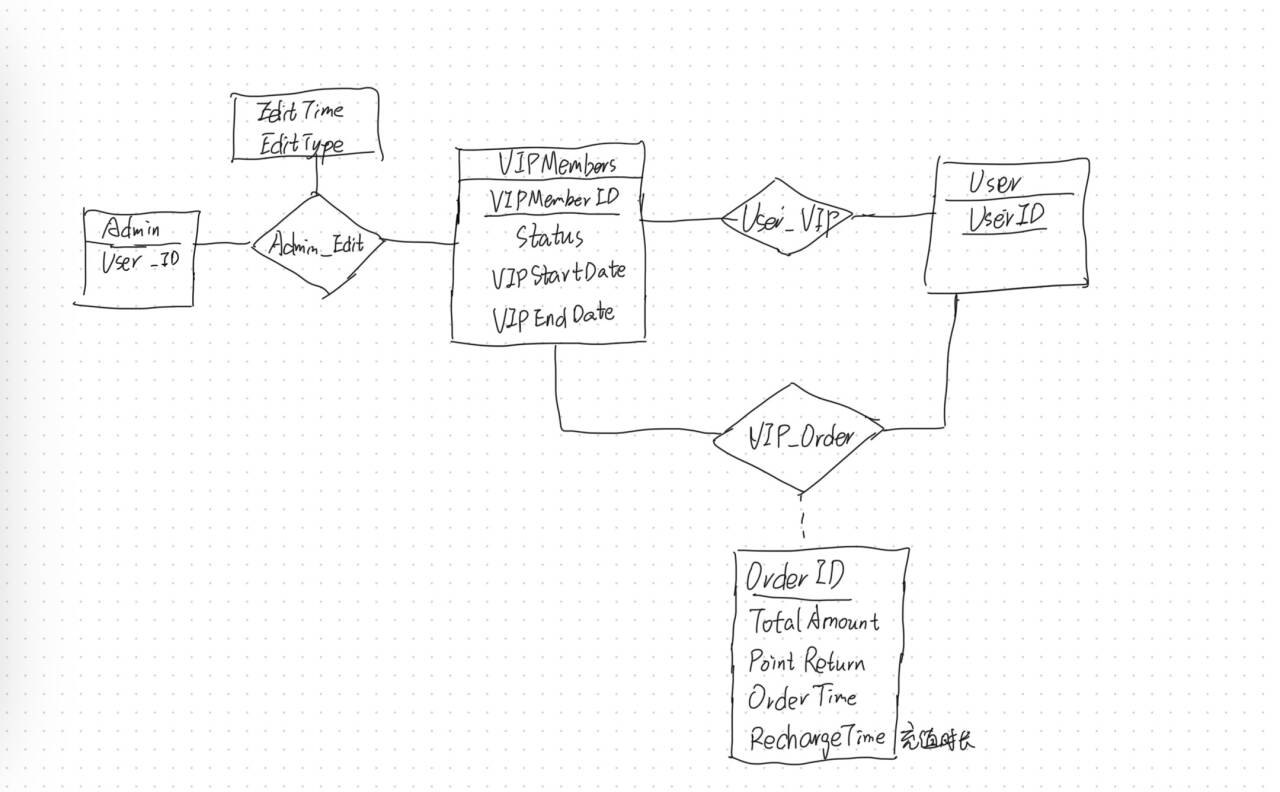 EditTime
EditType
Admin
User_ID
Admin_Edit
VIPMembers
VIPMemberID
Status
VIPStartDate
VIPEndDate
User_VIP
User
UserID
VIP_Order
OrderID
TotalAmount
PointReturn
OrderTime
RechargeTime 充值时长